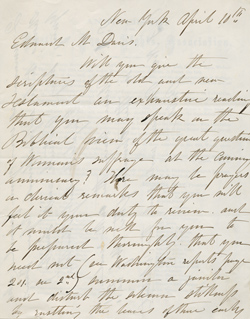 New York April 10th
Edward M Davis.
Will you give the
scriptures of the old and new
Testament an exhaustive reading
that you may speak on the
Biblical view of the great question
of Woman's suffrage at the coming
anniversary? There may be prayers
or clerical remarks that you will
feel it your duty to review, and
it would be well for you to
be prepared thoroughly that you
need not (see Washington report page
summon a janitor
and disturb the
by rustling the leaves of